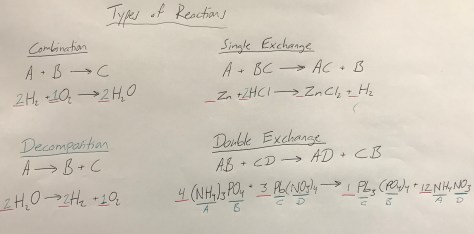 Types of Reactions
Combination
A + B → C
2H₂ + 1O₂ → 2H₂O
Single Exchange
A + BC → AC + B
_Zn + 2HCl → _ZnCl₂ + _H₂
Decomposition
A → B + C
2H₂O → 2H₂ + 1O₂
Double Exchange
AB + CD → AD + CB
4(NH₄)₃PO₄ + 3Pb(NO₃)₄ → 1Pb₃(PO₄)₄ + 12NH₄NO₃
A B C D C B A D